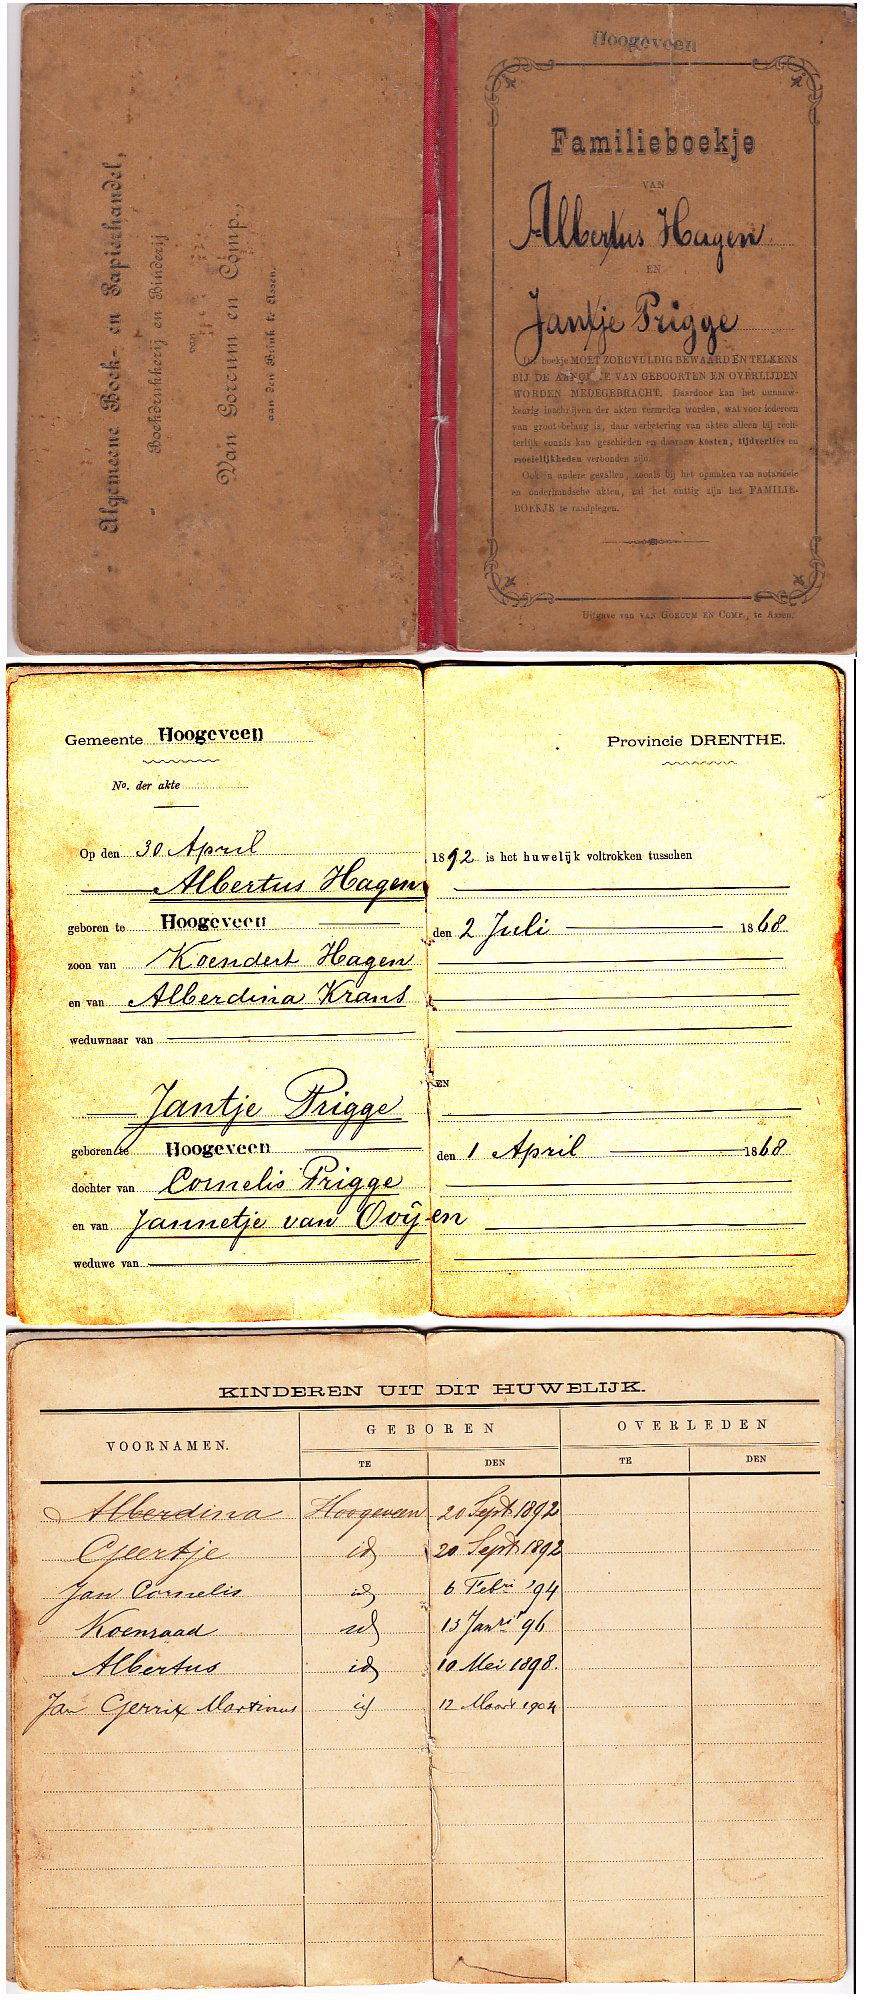 Algemeene Boek- en Papierhandel,
Boekdrukkerij en Binderij
van
Van Gorcum en Comp.,
aan den Brink te Assen.
Hoogeveen
Familieboekje
VAN
Albertus Hagen
EN
Jantje Prigge
Dit boekje MOET ZORGVULDIG BEWAARD EN TELKENS
BIJ DE AANGIFTE VAN GEBOORTEN EN OVERLIJDEN
WORDEN MEDEGEBRACHT. Daardoor kan het onnauw-
keurig inschrijven der akten vermeden worden, wat voor iedereen
van groot belang is, daar verbetering van akten alleen bij rech-
terlijk vonnis kan geschieden en daaraan kosten, tijdverlies en
moeielijkheden verbonden zijn.
Ook in andere gevallen, zooals bij het opmaken van notarieele
en onderhandsche akten, zal het nuttig zijn het FAMILIE-
BOEKJE te raadplegen.
Uitgave van VAN GORCUM EN COMP., te Assen.
Gemeente Hoogeveen
Provincie DRENTHE.
No. der akte
Op den 30 April 1892 is het huwelijk voltrokken tusschen
Albertus Hagen
geboren te Hoogeveen den 2 Juli 1868
zoon van Koendert Hagen
en van Alberdina Krans
weduwnaar van
EN
Jantje Prigge
geboren te Hoogeveen den 1 April 1868
dochter van Cornelis Prigge
en van Jannetje van Ooijen
weduwe van
KINDEREN UIT DIT HUWELIJK.
VOORNAMEN. GEBOREN OVERLEDEN
TE DEN TE DEN
Alberdina Hoogeveen 20 Sept 1892
Geertje id 20 Sept 1892
Jan Cornelis id 6 Febri '94
Koenraad id 13 Janri '96
Albertus id 10 Mei 1898.
Jan Gerrit Martinus id 12 Maart 1904